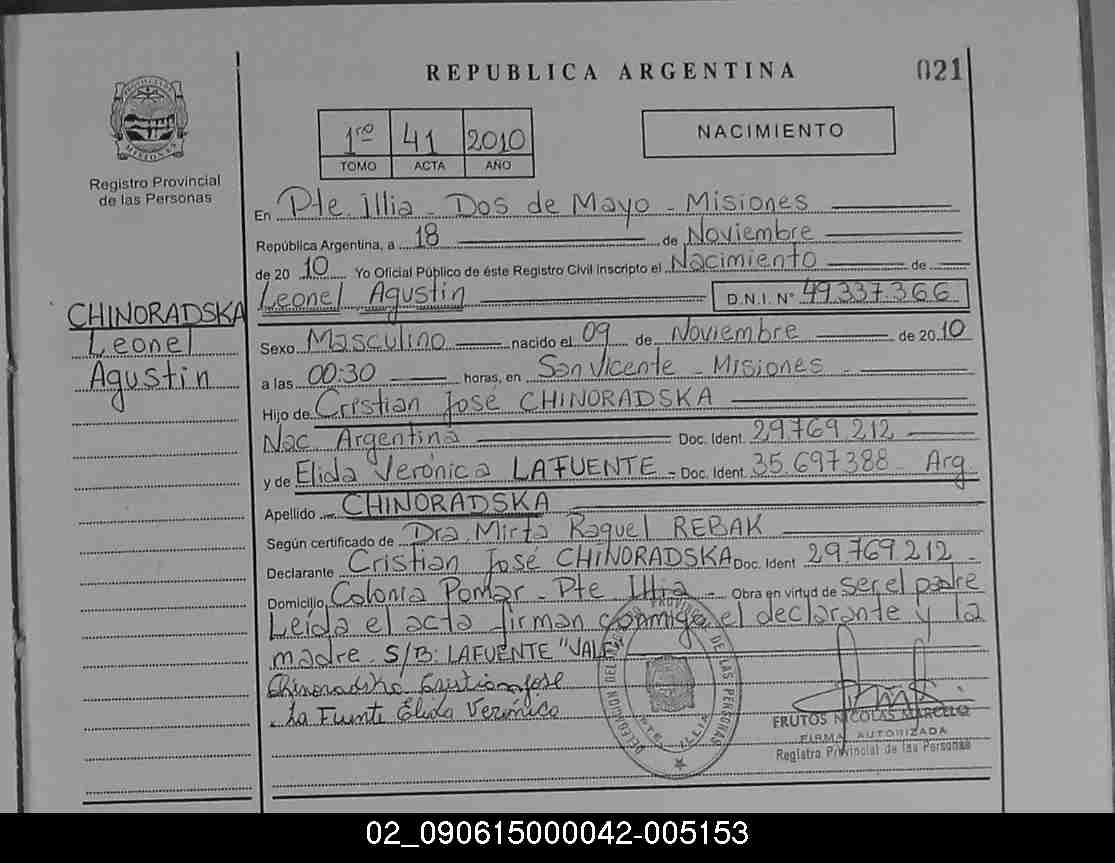 REPUBLICA ARGENTINA
021
PROVINCIA DE MISIONES
Registro Provincial
de las Personas
1ro 41 2010
TOMO ACTA AÑO
NACIMIENTO
En Pte. Illia - Dos de Mayo - Misiones
República Argentina, a 18 de Noviembre
de 2010 Yo Oficial Público de éste Registro Civil inscripto el Nacimiento de
Leonel Agustin D.N.I. N° 49.337.366
CHINORADSKA
Leonel
Agustin
Sexo Masculino nacido el 09 de Noviembre de 2010
a las 00:30 horas, en San Vicente - Misiones -
Hijo de Cristian José CHINORADSKA
Nac. Argentina Doc. Ident. 29.769.212
y de Elida Verónica LAFUENTE - Doc. Ident. 35.697.388 Arg
Apellido CHINORADSKA
Según certificado de Dra Mirta Raquel REBAK
Declarante Cristian José CHINORADSKA Doc. Ident 29.769.212 -
Domicilio Colonia Pomar - Pte Illia Obra en virtud de ser el padre
Leída el acta firman conmigo el declarante y la
madre. S/B: LAFUENTE "VALE"
Chinoradska Cristian Jose
La Fuente Elida Verónica
DE LAS PERSONAS
FRUTOS NICOLAS MARCELO
FIRMA AUTORIZADA
Registro Provincial de las Personas
02_090615000042-005153